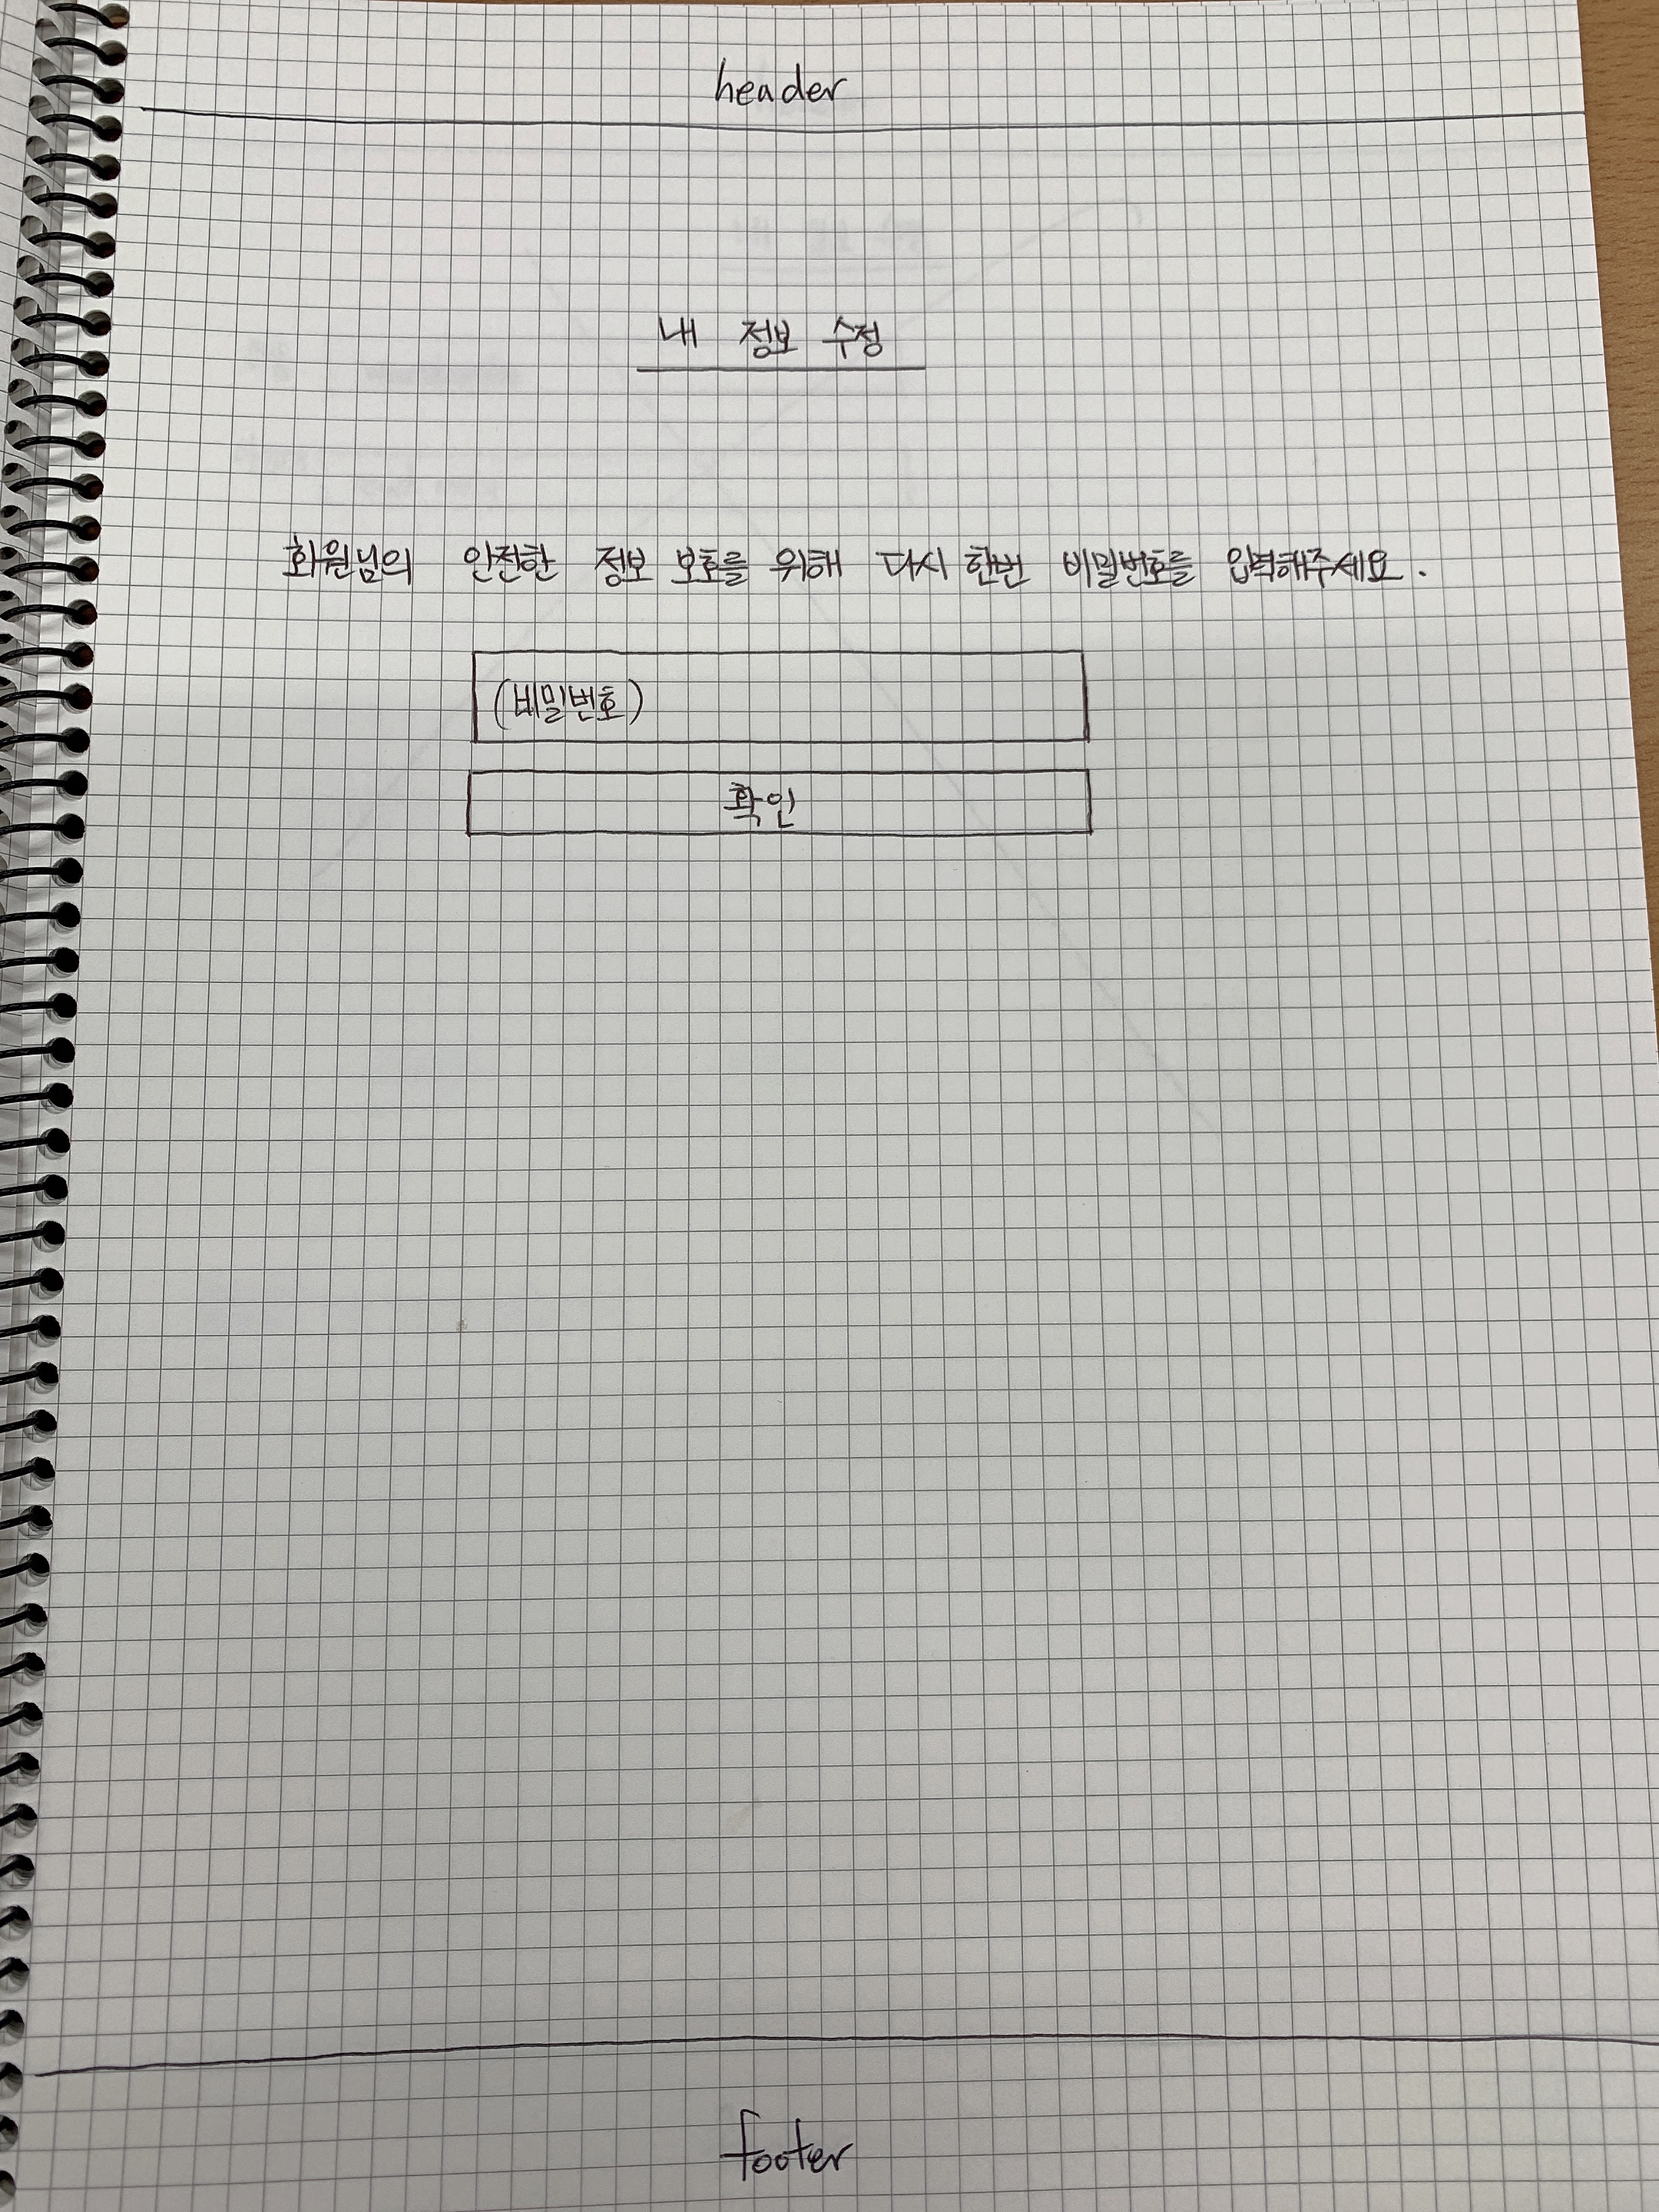 header
내 정보 수정
회원님의 안전한 정보 보호를 위해 다시 한번 비밀번호를 입력해주세요.
(비밀번호)
확인
footer